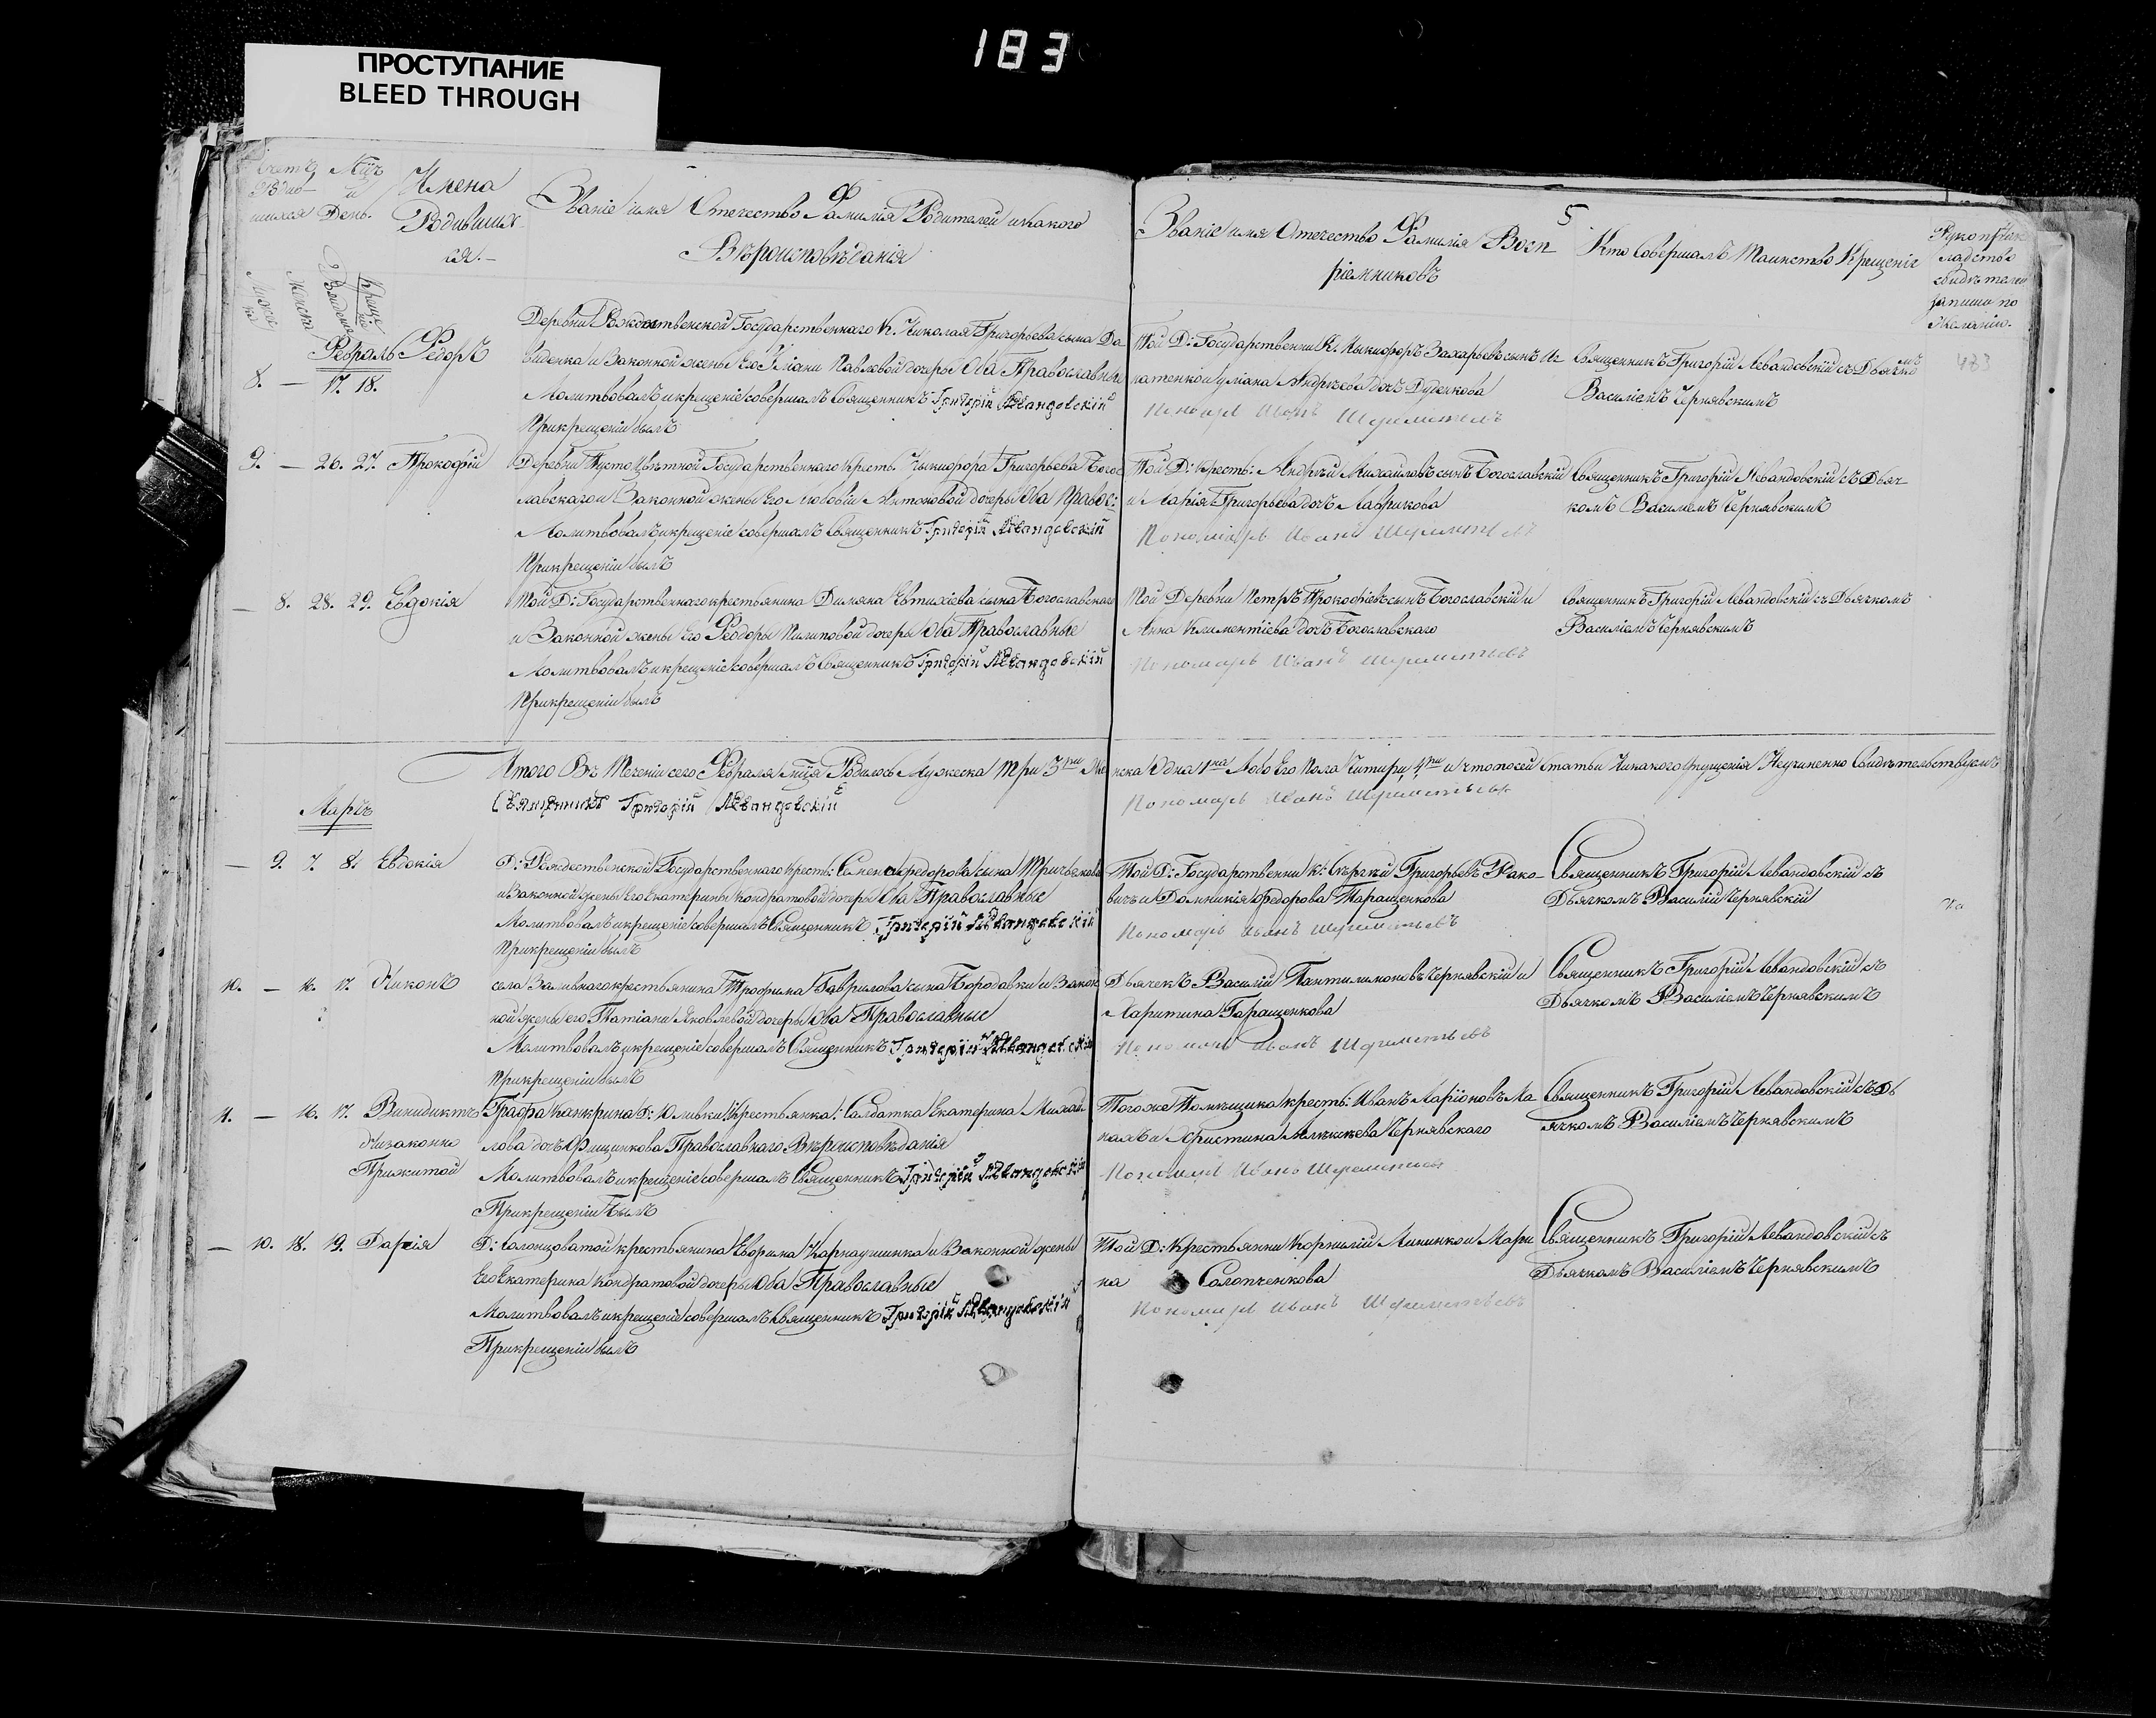 183
ПРОСТУПАНИЕ
BLEED THROUGH
Счетъ Родив-
шихся
Мцъ
и
День.
Имена
Родивших
ся.
Званіе имя Отечество Фамилія Родителей и какого
Вѣроисповѣданія
5
Званіе имя Отечество Фамилія Восп
ріемниковъ
Кто Совершалъ Таинство Крещенія
Рукоприк
ладство
свидѣтелей
записи по
Желанію.
Мужес
ка
Женска
Рожденія
Крещенія
Февраль
8. — 17. 18.
Федоръ
Деревни Рождественской Государственнаго К. Николая Григорьева сына Да
виденка и Законной жены Его Уліани Павловой дочеры Оба Православные
Молитвовалъ и крещеніе совершалъ Священникъ Григорій Левандовскій
При крещеніи былъ
Той Д: Государственни К. Никифоръ Захарьевъ сынъ Иг
натенко и Уліана Андреева дочъ Дудочкова
Пономарь Иванъ Шереметьевъ
Священникъ Григорій Левандовскій съ Дьячкомъ
Василіемъ Чернявскимъ
483
9. — 26. 27. Прокофій
Деревни Пустоцвѣтной Государственнаго Кресть. Никифора Григорьева Богос
лавскаго и Законной жены Его Любовіи Антоновой дочеры Оба Правос:
Молитвовалъ и крещеніе совершалъ Священникъ Григорій Левандовскій
При крещеніи былъ
Той Д: Кресть: Андрей Михайловъ сынъ Богославскій
и Марія Григорьева дочъ Лаврикова
Пономарь Иванъ Шереметьевъ
Священникъ Григорій Левандовскій съ Дьяч
комъ Василіемъ Чернявскимъ
— 8. 28. 29. Евдокія
Той Д: Государственнаго крестьянина Дамяна Евтихіева сына Богославскаго
и Законной жены Его Феодоры Пилиповой дочеры Оба Православные
Молитвовалъ и крещеніе совершалъ Священникъ Григорій Левандовскій
При крещеніи былъ
Той Деревни Петръ Прокофіевъ сынъ Богославскій и
Анна Климентіева дочъ Богославскаго
Пономарь Иванъ Шереметьевъ
Священникъ Григорій Левандовскій съ Дьячкомъ
Василіемъ Чернявскимъ
Итого Въ Теченіи сего Февраля мця Родилось Мужеска Три 3ри Же
нска Одна 1на Обоего Пола Читири 4ри и что по сей Статьи Никакого опущенія Неучиненно Свидѣтельствуемъ
Священникъ Григорій Левандовскій
Пономарь Иванъ Шереметьевъ
Мартъ
— 9. 7. 8. Евдокія
Д: Рождественской Государственнаго Кресть: Семена Федорова сына
и Законной жены Его Екатерины Кондратовой дочеры Оба Православные
Молитвовалъ и крещеніе совершалъ Священникъ Григорій Левандовскій
При крещеніи былъ
Той Д: Государственни К: Сергѣй Григорьевъ Рако
вичъ и Домникія Федорова Таращенкова
Пономарь Иванъ Шереметьевъ
Священникъ Григорій Левандовскій съ
Дьячкомъ Василій Чернявскій
10. — 16. 17. Никонъ
села Заливнаго крестьянина Трофима Гаврилова сына Бородавки и Закон
ной жены его Татіани Яковлевой дочеры Оба Православные
Молитвовалъ и крещеніе совершалъ Священникъ Григорій Левандовскій
При крещеніи былъ
Дьячекъ Василій Пантилимоновъ Чернявскій и
Харитина Таращенкова
Пономарь Иванъ Шереметьевъ
Священникъ Григорій Левандовскій съ
Дьячкомъ Василіемъ Чернявскимъ
11. — 16. 17. Винидиктъ
Низаконно
Прижитой
Графа Канкрина Д: Юливки Крестьянка: Салдатка Екатерина Михай
лова дочъ Православнаго Вѣроисповѣданія
Молитвовалъ и крещеніе совершалъ Священникъ Григорій Левандовскій
При крещеніи Былъ
Тогоже Помещика кресть: Иванъ Ларіоновъ Ма
и Христина Алексѣева Чернявскаго
Пономарь Иванъ Шереметьевъ
Священникъ Григорій Левандовскій съ Дь
ячкомъ Василіемъ Чернявскимъ
— 10. 18. 19. Дарія
Д: Солонцоватой крестьянина Ефрима Карнаушинка и Законной жены
Его Екатерина Кондратовой дочеры Оба Православные
Молитвовалъ и крещеніе совершалъ Священникъ Григорій Левандовскій
При крещеніи былъ
Той Д: Крестьянни Корнилій Минынко и Мари
на Солопченкова
Пономарь Иванъ Шереметьевъ
Священникъ Григорій Левандовскій съ
Дьячкомъ Василіемъ Чернявскимъ